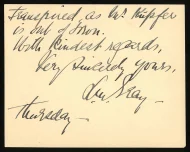 transpired, as Mr. Kupfer
is out of town.
With kindest regards,
Very Sincerely yours,
Gray
Thursday